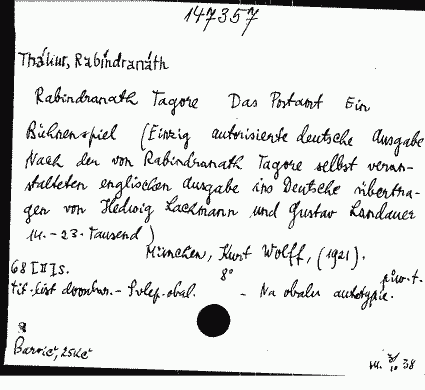 147357
Thákur, Rabíndranáth
Rabindranath Tagore Das Postamt Ein
Bühnenspiel (Einzig autorisierte deutsche Ausgabe
Nach der von Rabindranath Tagore selbst veran-
stalteten englischen Ausgabe ins Deutsche übertra-
gen von Hedwig Lachmann und Gustav Landauer
14.-23. Tausend)
München, Kurt Wolff, (1921).
68 [II] s. 8° půvo.t.
tit. list dvoubar. - obal. - Na obalu autotypie.
Barvič, 25Kč
38